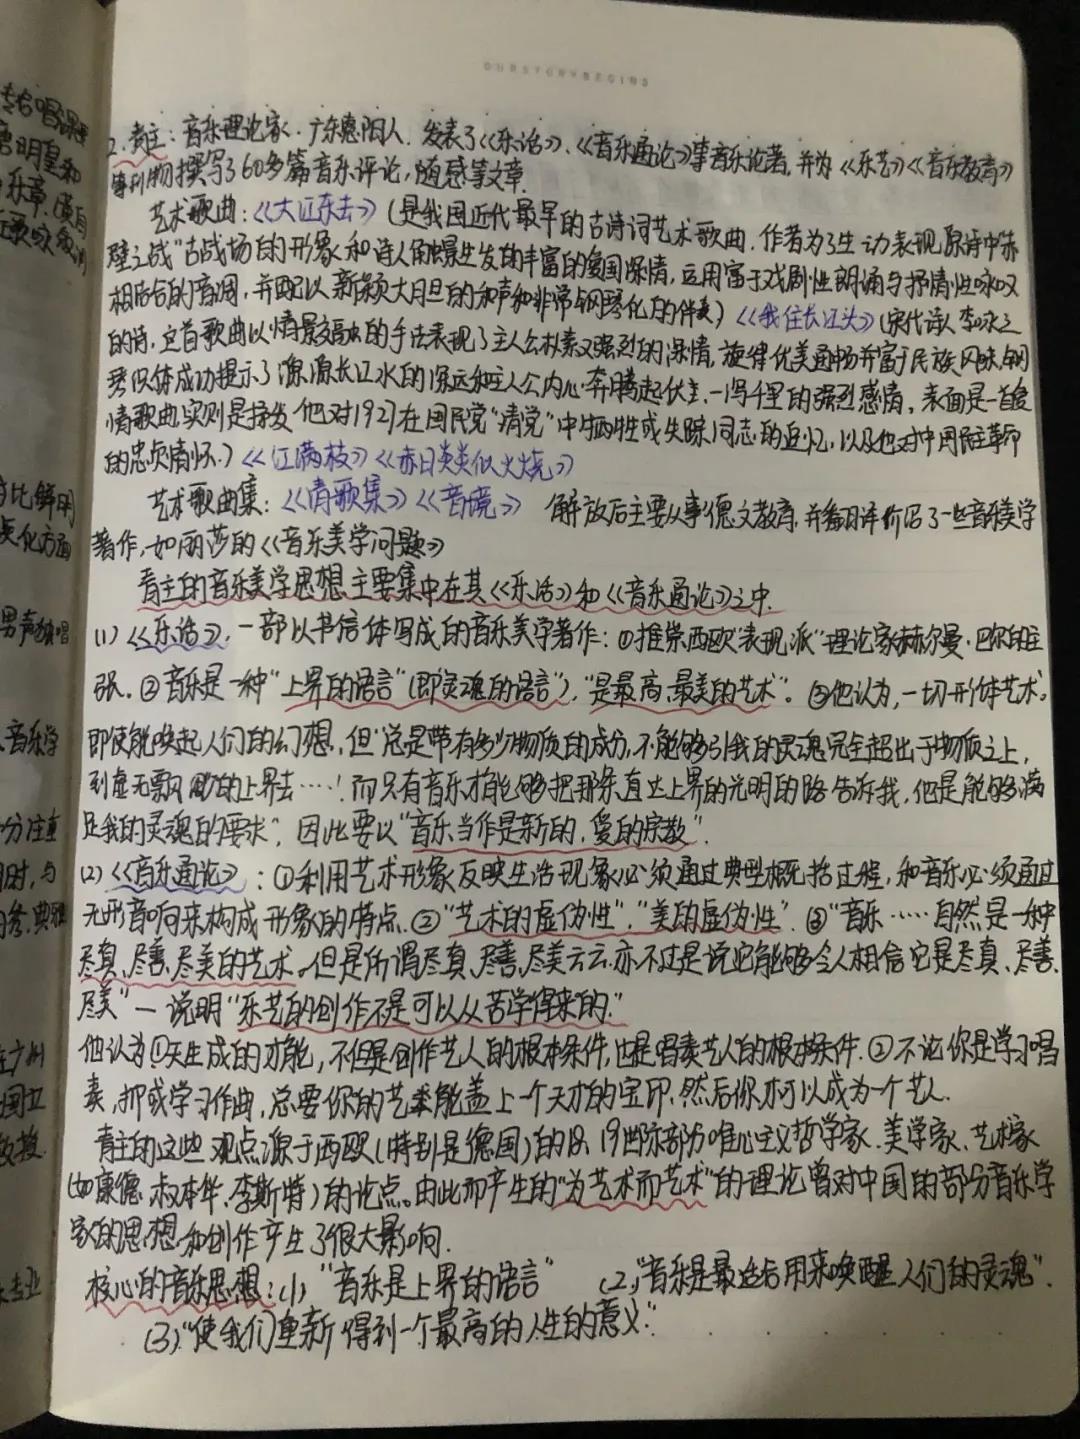 OURSTORYBEGINS
2. 青主：音乐理论家. 广东惠阳人. 发表了《乐话》、《音乐通论》等音乐论著, 并为《乐艺》《音乐教育》
等刊物撰写了60多篇音乐评论, 随感等文章.
艺术歌曲：《大江东去》(是我国近代最早的古诗词艺术歌曲. 作者为了生动表现原诗中"赤
壁之战"古战场的形象和诗人触景生发的丰富的爱国深情, 运用富于戏剧性朗诵与抒情性咏叹
相结合的音调, 并配以新颖大胆的和声和非常钢琴化的伴奏)《我住长江头》(宋代诗人李咏之
的诗. 这首歌曲以情景交融的手法表现了主人公朴素又强烈的深情, 旋律优美通畅并富于民族风味, 钢
琴织体成功提示了源源长江水的深远和主人公内心奔腾起伏, 一泻千里的强烈感情, 表面是一首爱
情歌曲, 实则是抒发他对1927在国民党"清党"中牺牲或失踪同志的追忆, 以及他对中国民主革命
的忠贞情怀.)《红满枝》《赤日炎炎似火烧》
艺术歌曲集：《清歌集》《音境》 解放后主要从事德文教育, 并翻译介绍了一些音乐美学
著作, 如丽莎的《音乐美学问题》
青主的音乐美学思想主要集中在其《乐话》和《音乐通论》之中.
(1)《乐话》, 一部以书信体写成的音乐美学著作：①推崇西欧"表现派"理论家赫尔曼·巴尔的主
张. ②音乐是一种"上界的语言"(即灵魂的语言), "是最高、最美的艺术". ③他认为, 一切形体艺术,
即使能唤起人们的幻想, 但"总是带有多少物质的成分, 不能够引我的灵魂完全超出于物质之上,
到虚无飘渺的上界去……! 而只有音乐才能够把那条直达上界的光明的路告诉我, 他是能够满
足我的灵魂的要求", 因此要以"音乐当作是新的, 爱的宗教".
(2)《音乐通论》：①利用艺术形象反映生活现象必须通过典型概括过程, 和音乐必须通过
无形音响来构成形象的特点. ②"艺术的虚伪性"、"美的虚伪性". ③"音乐……自然是一种
尽真、尽善、尽美的艺术。但是所谓尽真、尽善、尽美云云, 亦不过是说它能够令人相信它是尽真、尽善、
尽美"一说明"乐艺的创作不是可以从苦学得来的."
他认为①天生成的才能, 不但是创作艺人的根本条件, 也是唱奏艺人的根本条件. ②不论你是学习唱
奏, 抑或学习作曲, 总要你的艺术能盖上一个天才的宝印, 然后你才可以成为一个艺人.
青主的这些观点源于西欧(特别是德国)的18、19世际部分唯心主义哲学家、美学家、艺术家
(如康德、叔本华、李斯特)的论点. 由此而产生的"为艺术而艺术"的理论曾对中国的部分音乐学
家的思想和创作产生了很大影响.
核心的音乐思想：(1) "音乐是上界的语言" (2)"音乐是最适合用来唤醒人们的灵魂".
(3)"使我们重新得到一个最高的人生的意义".